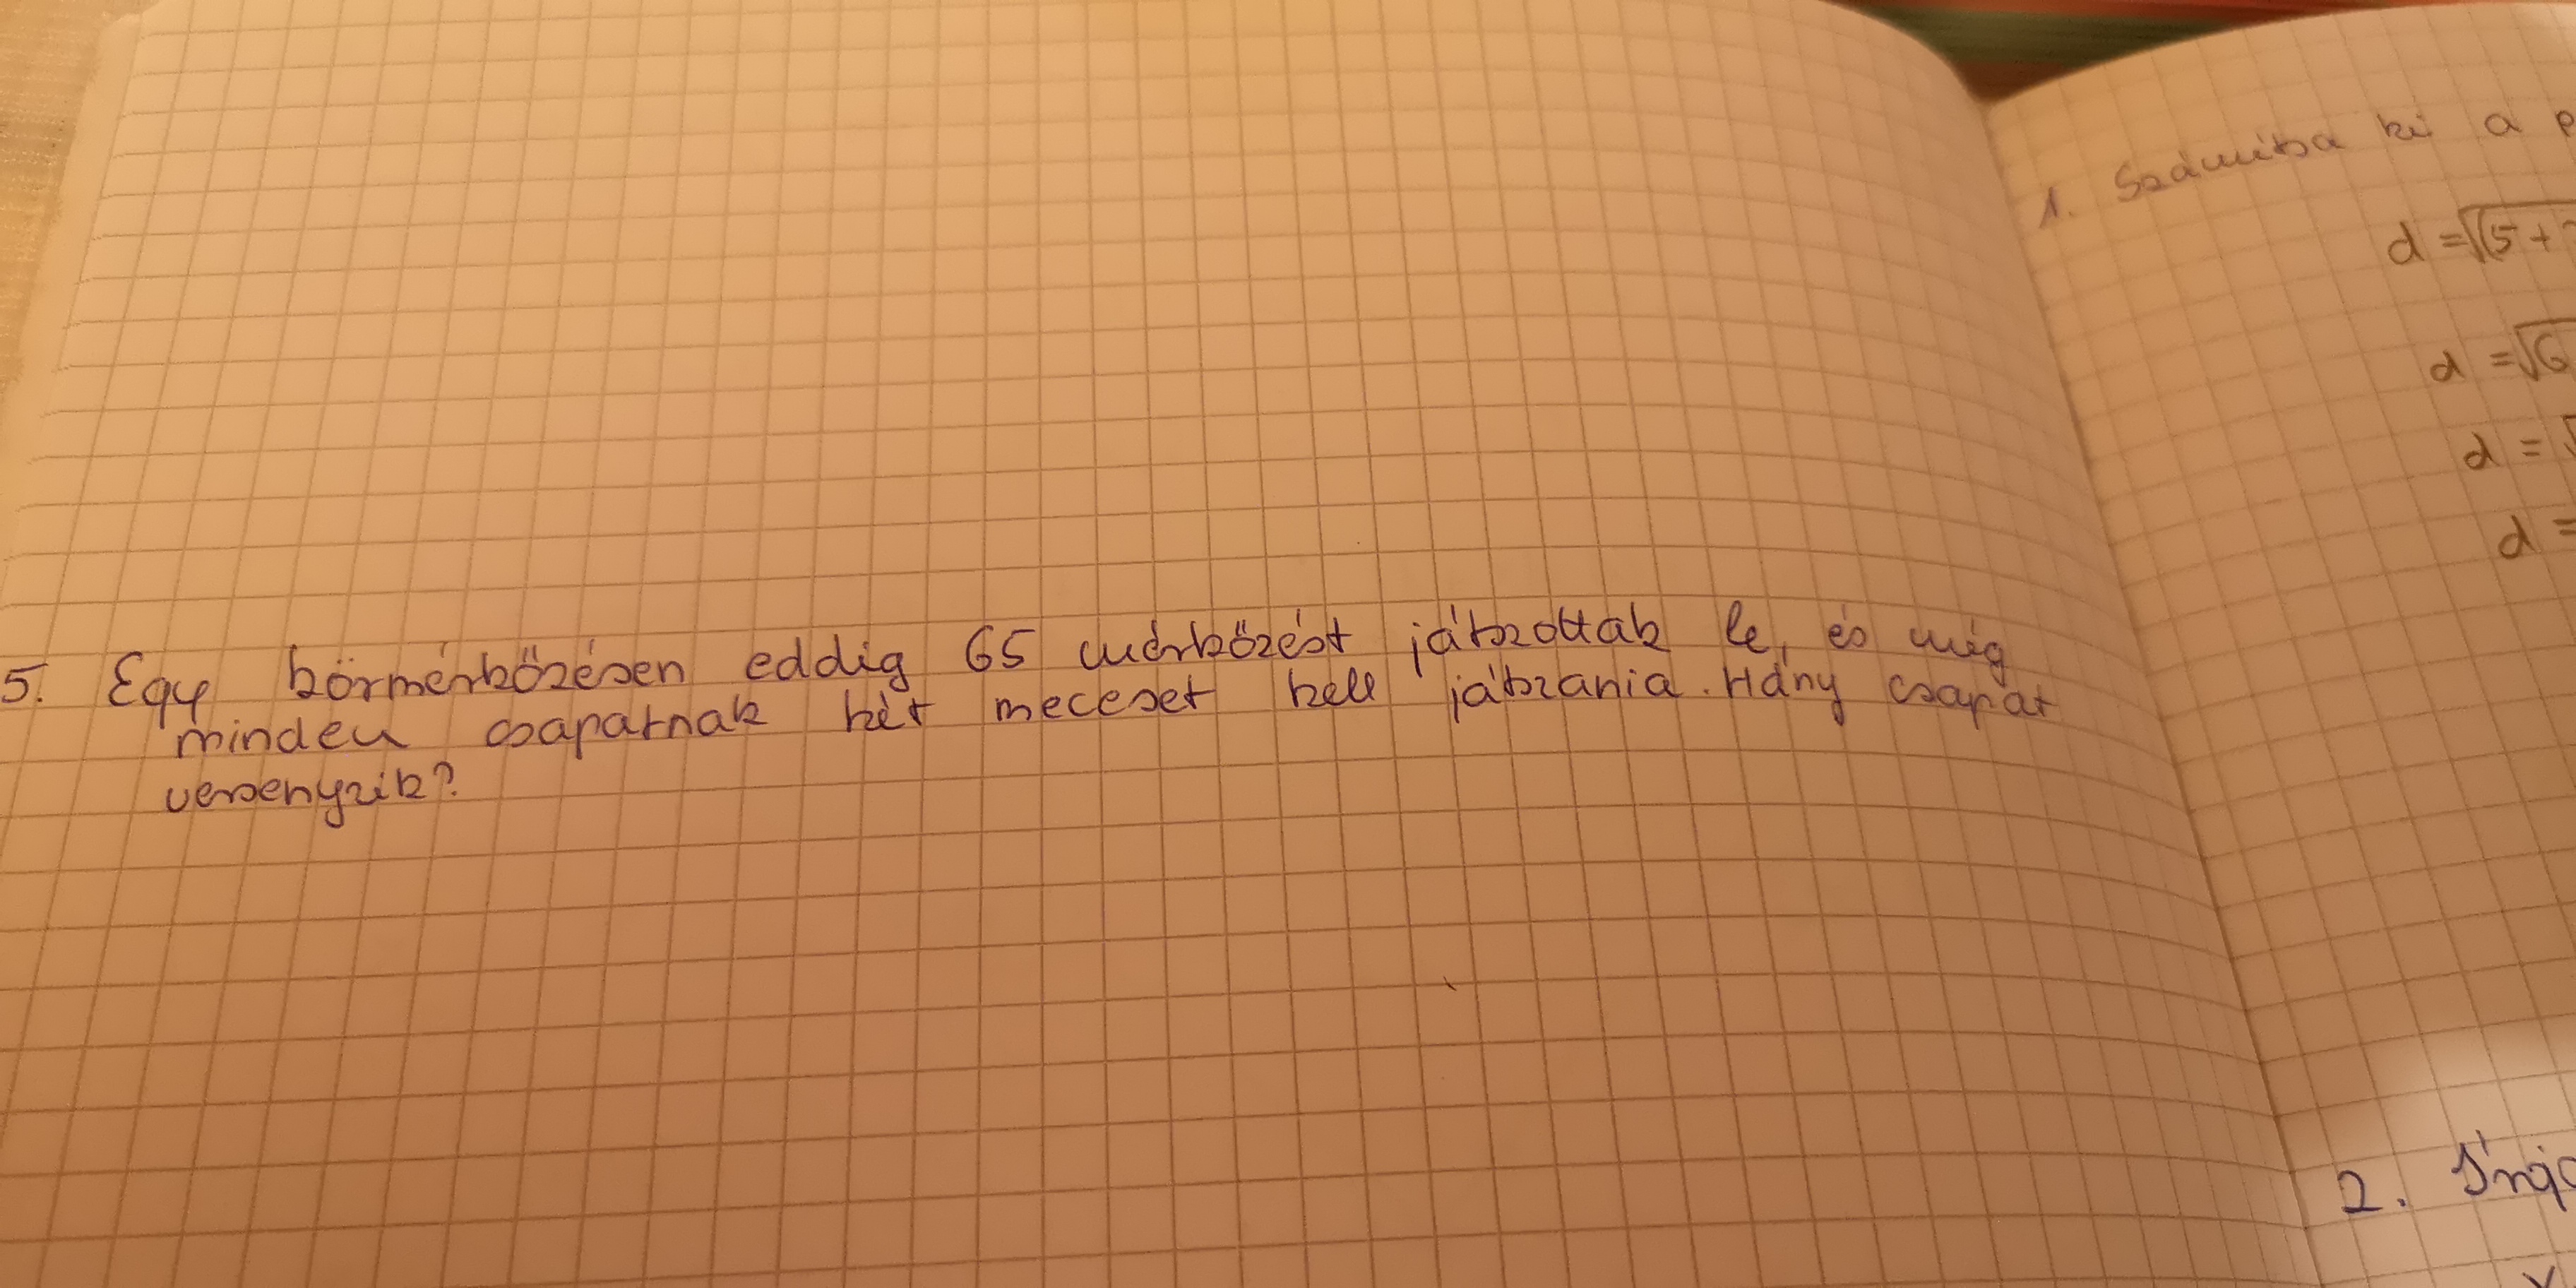 5. Egy körmérkőzésen eddig 65 mérkőzést játszottak le, és még
minden csapatnak két meccset kell játszania. Hány csapat
versenyzik?
1. Számítsa ki a p
d = √(5+
d = √6
d = √
d =
2.